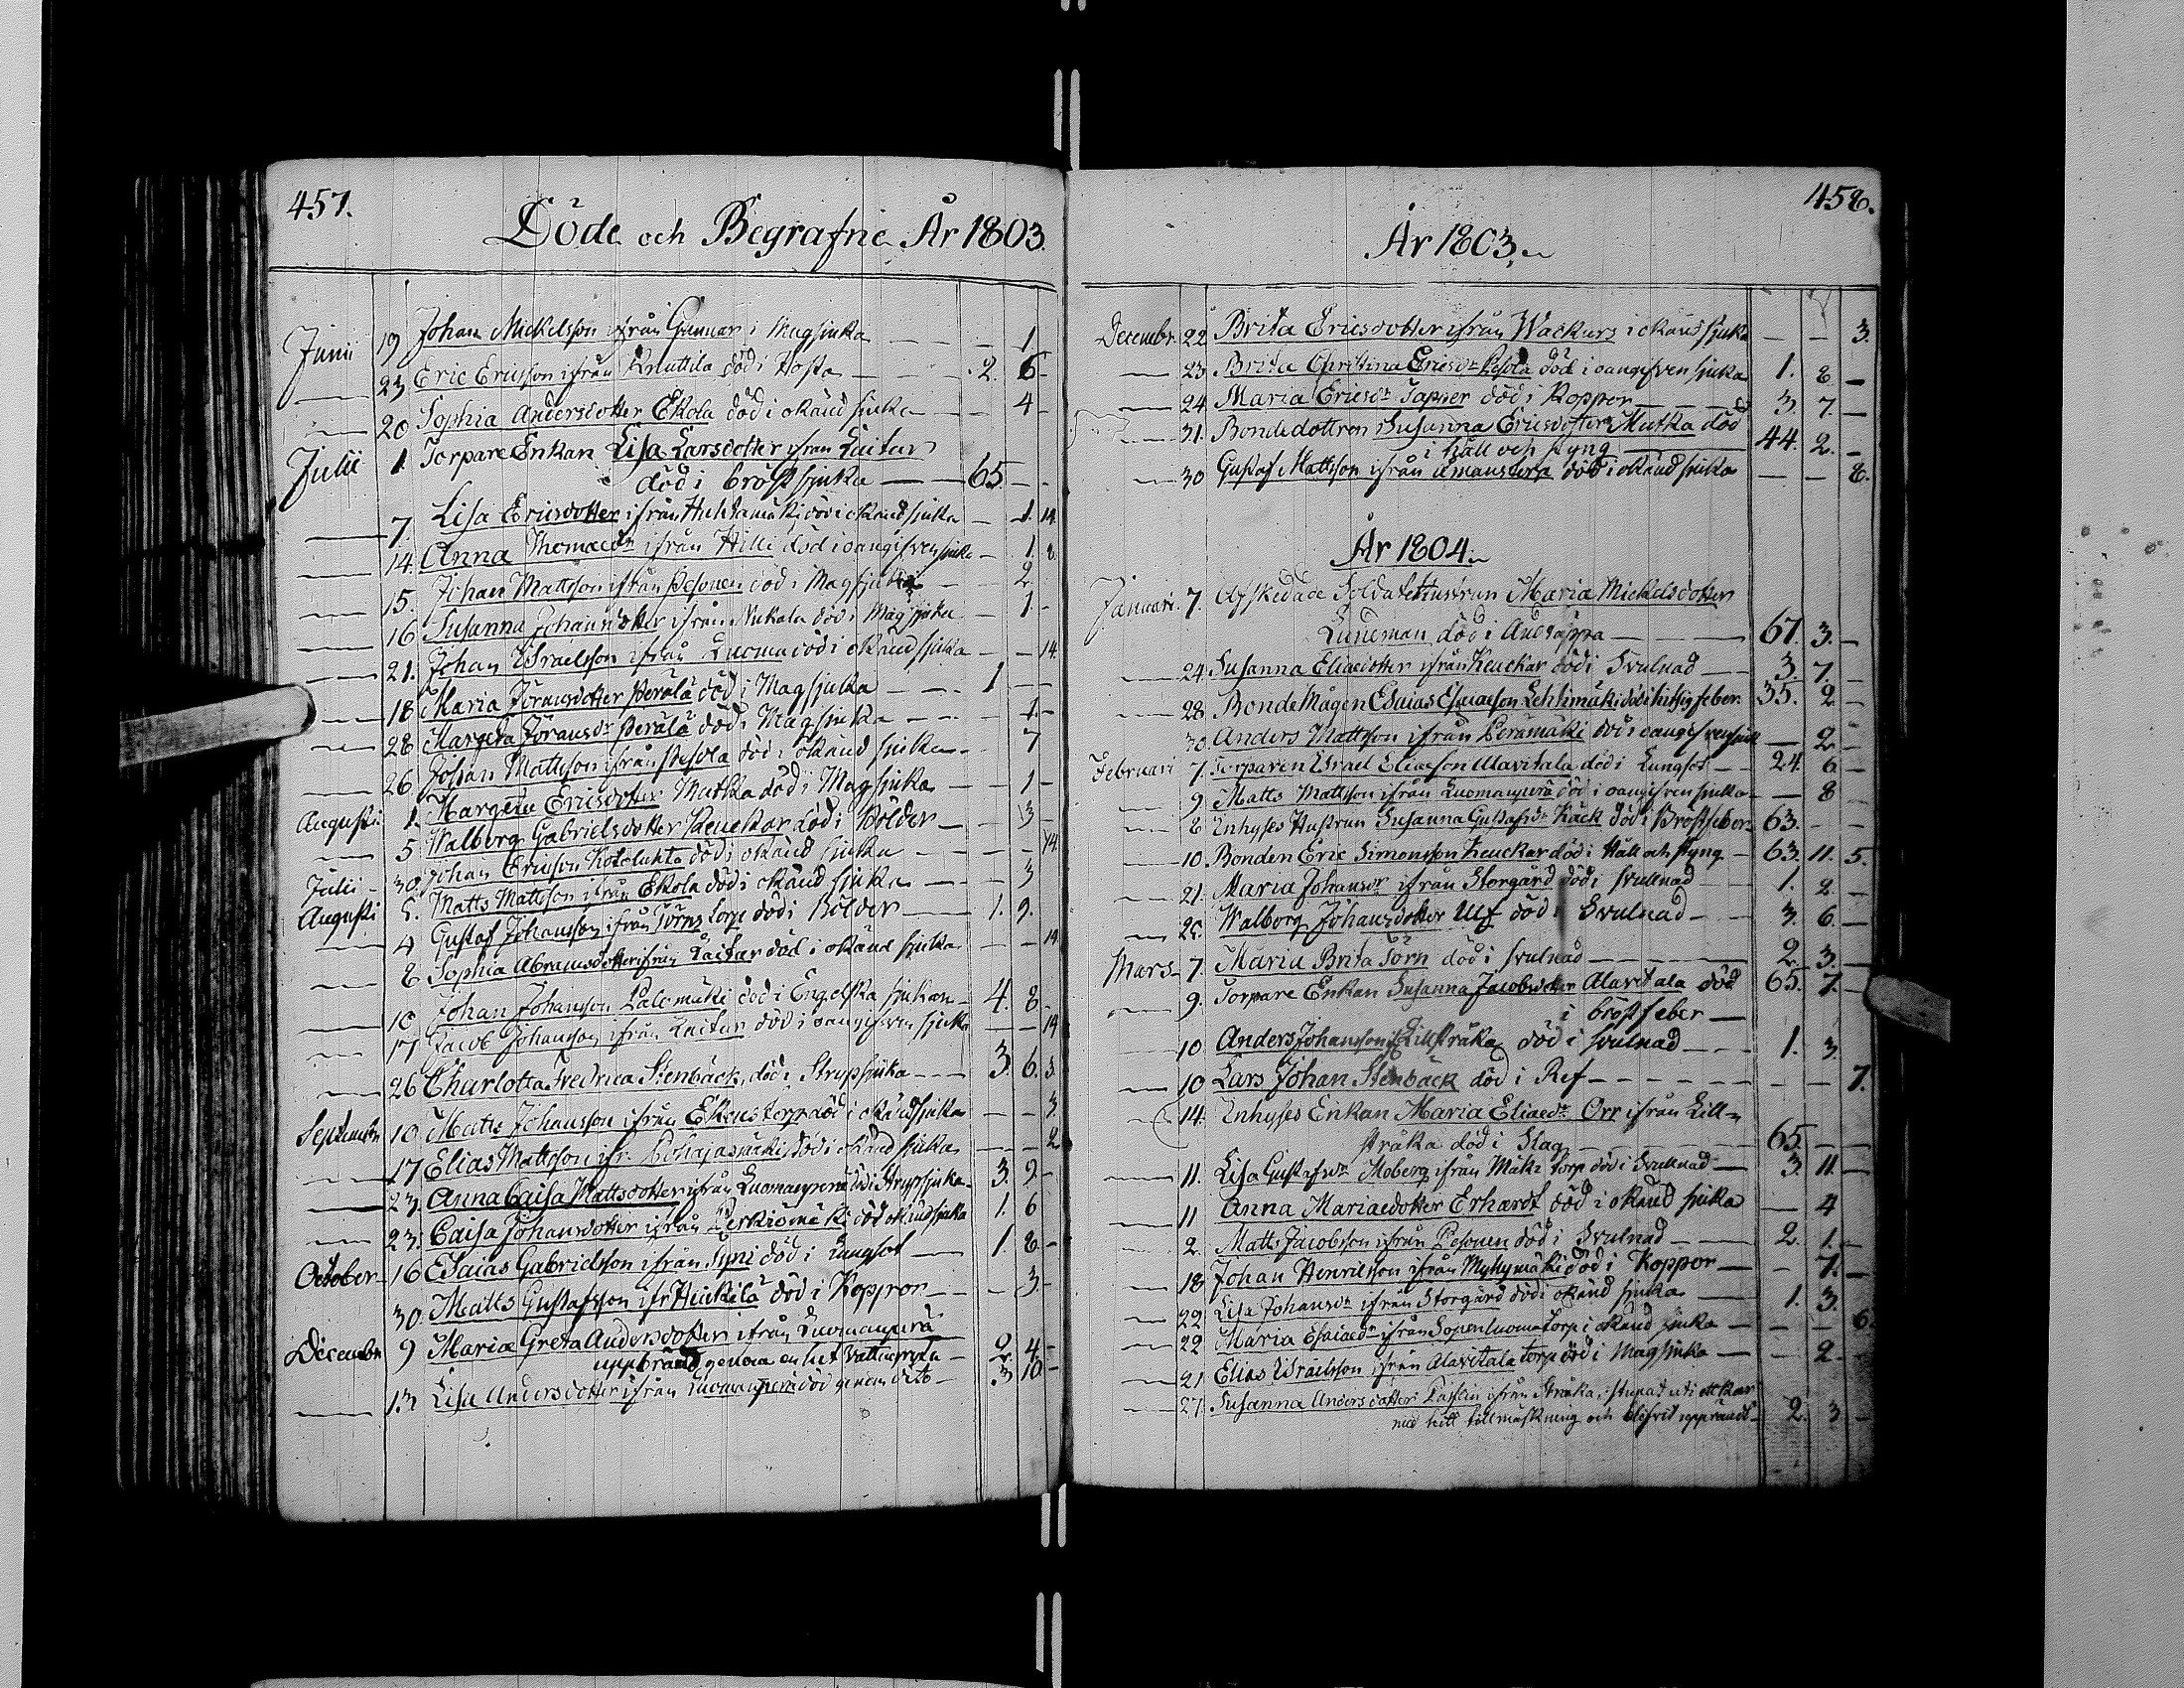 457.
Döde och Begrafne År 1803.
Junii 19 Johan Mickelsson ifrån Gunnar i Magsjuka — 1. 
23 Eric Ericsson ifrån Knuttila död i Hosta — 2. 6 -
20 Sophia Andersdotter Ekola död i okänd sjuka — 4 -
Julii 1. Torpare Enkan Lisa Larsdotter ifrån Laitar
död i bröst sjuka — 65. - -
7. Lisa Ericsdotter ifrån Huhtamäki död i okänd sjuka — 1. 14
14. Anna Thomaedr ifrån Hilli död i oangifven sjuka — 1. 8.
15. Johan Mattsson ifrån Pesonen död i Magsjuka — 2.
16 Susanna Johansdotter ifrån Nukala död i Magsjuka — 1 -
21. Johan Israelsson ifrån Luoma död i okänd sjuka — 14.
18 Maria Jöransdotter Perälä död i Magsjuka — 1 —
28 Margeta Jöransdr Perälä död i Magsjuka — 1 -
26. Johan Mattsson ifrån Pesola död i okänd sjuka — 7
Augusti 1. Margeta Ericsdotter Mutka död i Magsjuka — 1 -
5 Walborg Gabrielsdotter Keuckar död i Bölder — 3 -
Julii - 30. Johan Ericsson Kotoluhto död i okänd sjuka — 14
Augusti 5. Matts Mattsson ifrån Ekola död i okänd sjuka — 3
4 Gustaf Johansson ifrån Törns torp död i Bölder — 1. 9.
8. Sophia Abramsdotter ifrån Laitar död i okänd sjuka — 14
10 Johan Johansson Palomäki död i Engelska sjukan — 4. 8 -
17 Jacob Johansson ifrån Laitar död i oangifven sjuka — 14
26 Charlotta Fredrica Stenbäck, död i Strypsjuka — 3. 6. 3.
Septembr 10. Matts Johansson ifrån Ekens torp död i okänd sjuka — 3.
17 Elias Mattsson ifr. Pohjasmäki död i okänd sjuka — 2
23. Anna Caisa Mattsdotter ifrån Luomanperä död i Strypsjuka — 3. 9 -
23. Caisa Johansdotter ifrån Leskismäki död okänd sjuka 1. 6
October 16 Esaias Gabrielsson ifrån Syni död i Lungsot — 1. 8 -
30. Matts Gustafsson ifr Heickilä död i Koppor — 3. -
Decembr 9 Maria Greta Andersdotter ifrån Luomanperä
uppbränd genom en het Vattugryta — 2. 4 -
13. Lisa Andersdotter ifrån Luomanperä död genom dito — 3 10 -
458.
År 1803.
Decembr. 22. Brita Ericsdotter ifrån Wackurs i okänd sjuka — — 3.
23. Brita Christina Ericsdr Pesola död i oangifven sjuka 1. 8. —
24. Maria Ericsdr Tapper död i Koppor — 3. 7. —
31. Bondedottren Susanna Ericsdotter Mutka död
i håll och styng — 44. 2. -
30 Gustaf Mattsson ifrån Åmanstorp död i okänd sjuka — — 8.
År 1804.
Januari. 7. Afskedade Soldatehustrun Maria Mickelsdotter
Lundman död i Andtäppa — 67. 3. —
24. Susanna Eliaedotter ifrån Keuckar död i Svulnad — 3. 7. -
28. Bonde Mågen Esaias Esaiaeson Lehtimäki död i hitsig feber. 35. 2 -
30. Anders Mattsson ifrån Perämäki död i oangifven sjuk — 2 -
Februari 7. Torparen Israel Eliaeson Alavitala död i Lungsot — 24. 6 -
9. Matts Mattsson ifrån Luomanperä död i oangifven sjuka — 8 -
8 Inhyses Hustrun Susanna Gustafsdr Käck död i Bröstfeber 63. - -
10. Bonden Eric Simonsson Keuckar död i Håll och styng — 63. 11. 5.
21. Maria Johansdr ifrån Storgård död i svullnad — 1. 2 -
25. Walborg Johansdotter Ulf död i Svulnad — 3. 6. —
Mars - 7. Maria Brita Törn död i svulnad — 2. 3. —
9. Torpare Enkan Susanna Jacobsdotter Alavitala död 65. 7. —
i bröstfeber —
10. Anders Johansson if Lillstråka död i svulnad — 1. 3.
10 Lars Johan Stenbäck död i Ref — — 7.
14. Inhyses Enkan Maria Eliaedr Orr ifrån Lill-
stråka död i Slag — 65. — —
11. Lisa Gustafsdr Moberg ifrån Mäki torp död i Svullnad — 3. 11. —
11 Anna Mariaedotter Erhardt död i okänd sjuka — 4
2. Matts Jacobsson ifrån Pesonen död i Svulnad — 2. 1. —
18 Johan Henricsson ifrån Myllymäki död i Koppor — - 7. —
22. Lisa Johansdr ifrån Storgård död i okänd sjuka — 1. 3.
22 Maria Esaiaedr ifrån Sopenluoma torp i okänd sjuka — — 6.
21. Elias Israelsson ifrån Alavitala torp död i Magsjuka — 2 -
27. Susanna Andersdotter ifrån Stråka, stupad uti ett kar
med hett till mäskning och blifvit uppbränd - 2. 3 -